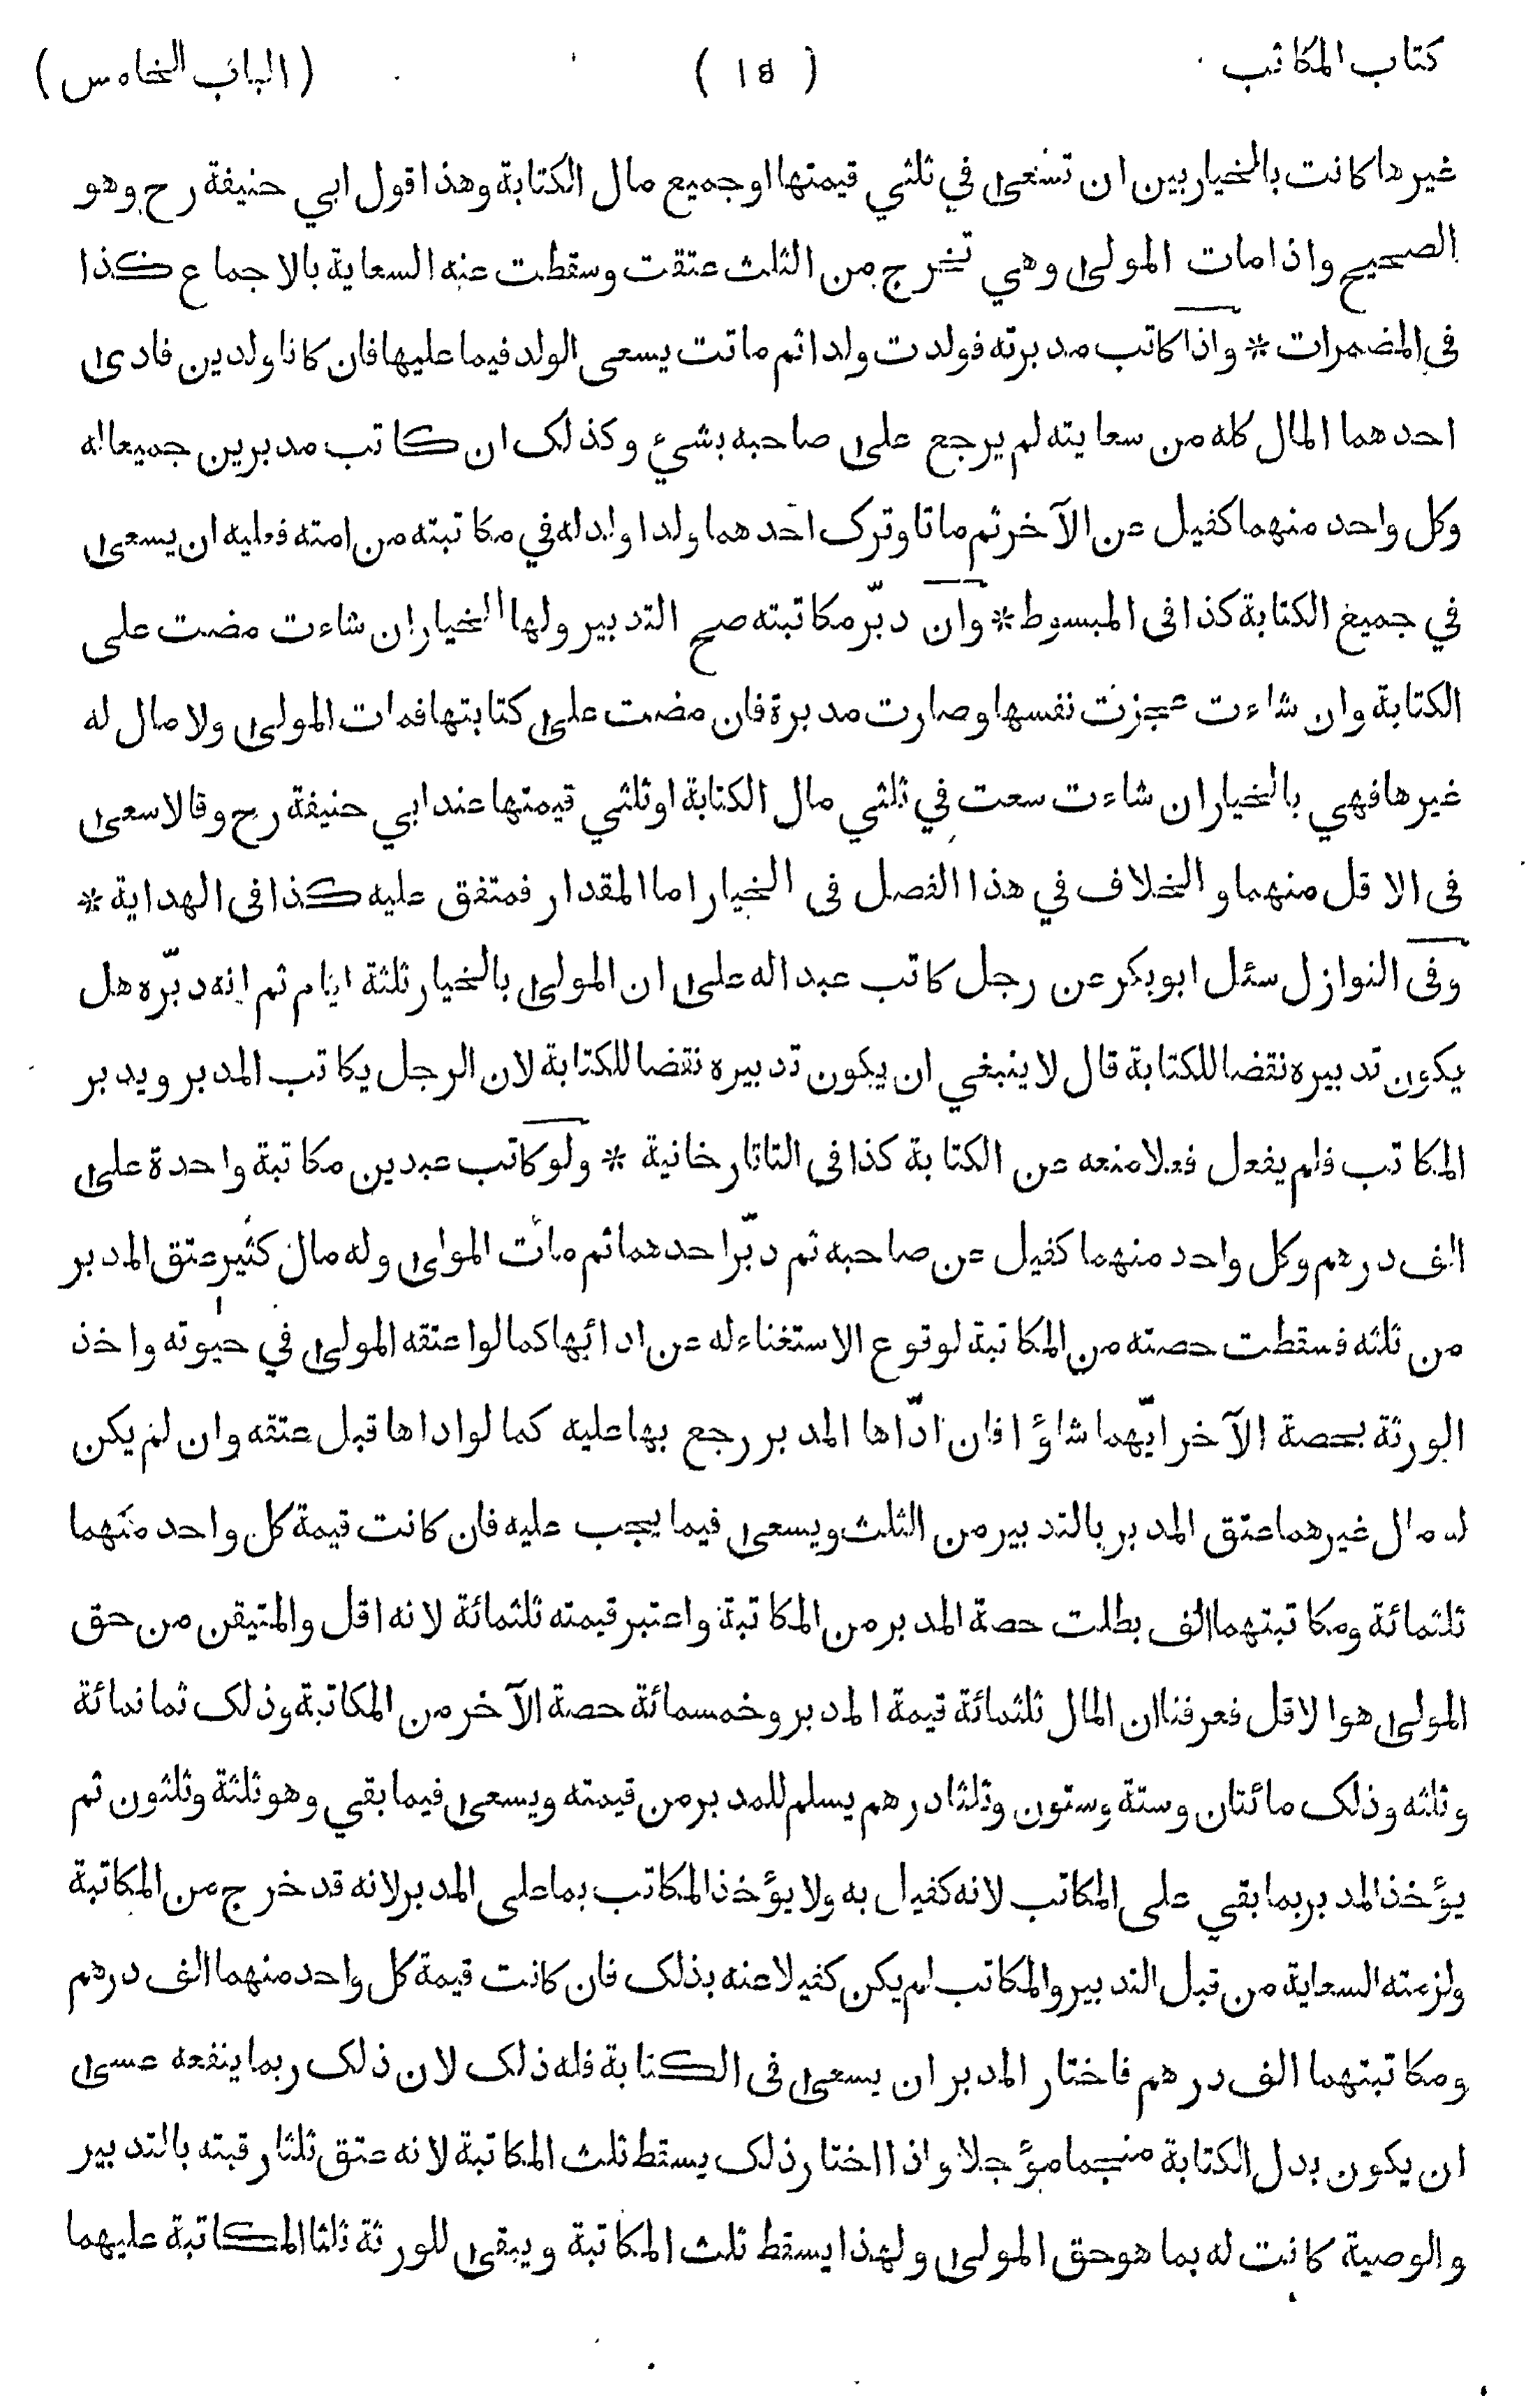 كتاب المكاتب ( ١٥ ) (الباب الخامس)
غيرها كانت بالخيار بين ان تسعى في ثلثي قيمتها او جميع مال الكتابة وهذا قول ابي حنيفة رح وهو
الصحيح واذا مات المولى وهي تخرج من الثلث عتقت وسقطت عنه السعاية بالاجماع كذا
فى المضمرات * واذا كاتب مدبرته فولدت ولدا ثم ماتت يسعى الولد فيما عليها فان كانا ولدين فادى
احدهما المال كله من سعايته لم يرجع على صاحبه بشيء وكذلك ان كاتب مدبرين جميعا له
وكل واحد منهما كفيل عن الآخر ثم ماتا وترك احدهما ولدا ولد له في مكاتبته من امته فعليه ان يسعى
في جميع الكتابة كذا فى المبسوط * وان دبّر مكاتبته صح التدبير ولها الخيار ان شاءت مضت على
الكتابة وان شاءت عجزت نفسها وصارت مدبرة فان مضت على كتابتها فمات المولى ولا مال له
غيرها فهي بالخيار ان شاءت سعت في ثلثي مال الكتابة او ثلثي قيمتها عند ابي حنيفة رح وقالا سعى
فى الاقل منهما والخلاف في هذا الفصل فى الخيار اما المقدار فمتفق عليه كذا فى الهداية *
وفى النوازل سئل ابو بكر عن رجل كاتب عبدا له على ان المولى بالخيار ثلثة ايام ثم انه دبّره هل
يكون تدبيره نقضا للكتابة قال لا ينبغي ان يكون تدبيره نقضا للكتابة لان الرجل يكاتب المدبر ويدبر
المكاتب فلم يفعل فعلا منعه عن الكتابة كذا فى التاتارخانية * ولو كاتب عبدين مكاتبة واحدة على
الف درهم وكل واحد منهما كفيل عن صاحبه ثم دبّر احدهما ثم مات المولى وله مال كثير عتق المدبر
من ثلثه فسقطت حصته من المكاتبة لوقوع الاستغناء له عن ادائها كما لو اعتقه المولى في حيوته واخذ
الورثة بحصة الآخر ايّهما شاؤا فان ادّاها المدبر رجع بها عليه كما لو اداها قبل عتقه وان لم يكن
له مال غيرهما عتق المدبر بالتدبير من الثلث ويسعى فيما يجب عليه فان كانت قيمة كل واحد منهما
ثلثمائة ومكاتبتهما الف بطلت حصة المدبر من المكاتبة واعتبر قيمته ثلثمائة لانه اقل والمتيقن من حق
المولى هو الاقل فعرفنا ان المال ثلثمائة قيمة المدبر وخمسمائة حصة الآخر من المكاتبة وذلك ثمانمائة
وثلثه وذلك مائتان وستة وستون وثلثا درهم يسلم للمدبر من قيمته ويسعى فيما بقي وهو ثلثة وثلثون ثم
يؤخذ المدبر بما بقي على المكاتب لانه كفيل به ولا يؤخذ المكاتب بما على المدبر لانه قد خرج من المكاتبة
ولزمته السعاية من قبل التدبير والمكاتب لم يكن كفيلا عنه بذلك فان كانت قيمة كل واحد منهما الف درهم
ومكاتبتهما الف درهم فاختار المدبر ان يسعى فى الكتابة فله ذلك لان ذلك ربما ينفعه عسى
ان يكون بدل الكتابة منجما مؤجلا واذا اختار ذلك يسقط ثلث المكاتبة لانه عتق ثلثا رقبته بالتدبير
والوصية كانت له بما هو حق المولى ولهذا يسقط ثلث المكاتبة ويبقى للورثة ثلثا المكاتبة عليهما